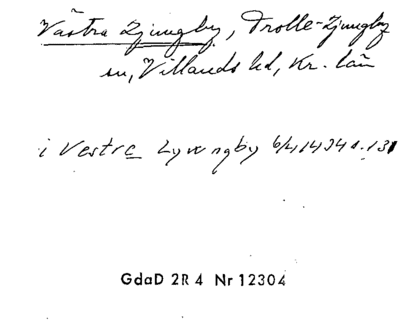 Västra Ljungby, Trolle-Ljungby
sn, Villands hd, Kr. län
i Vestre Lywngby 6/4 1494 s. 131
GdaD 2R 4 Nr 12304